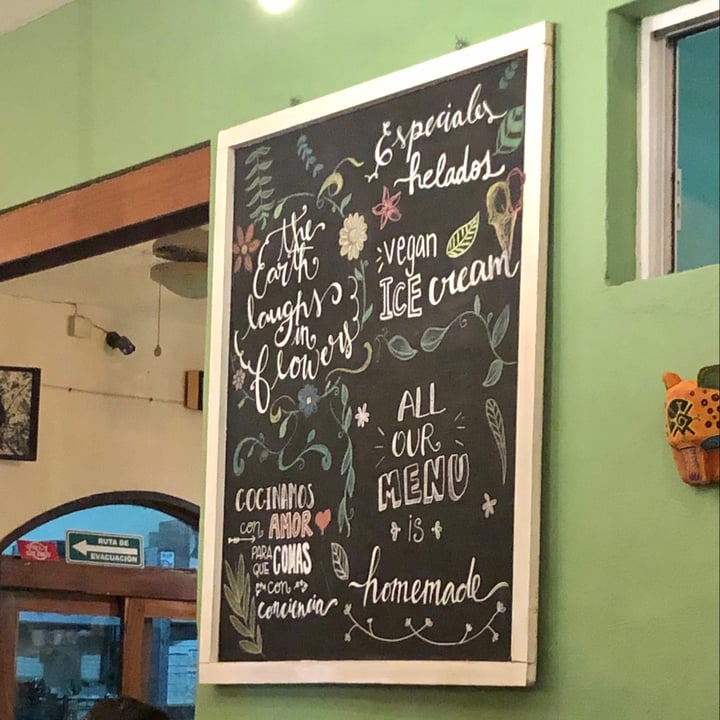 Especiales
helados
the
Earth
laughs
in
flowers
vegan
ICE cream
ALL
OUR
MENU
is
homemade
COCINAMOS
con AMOR
PARA
QUE COMAS
con
conciencia
RUTA DE
EVACUACIÓN